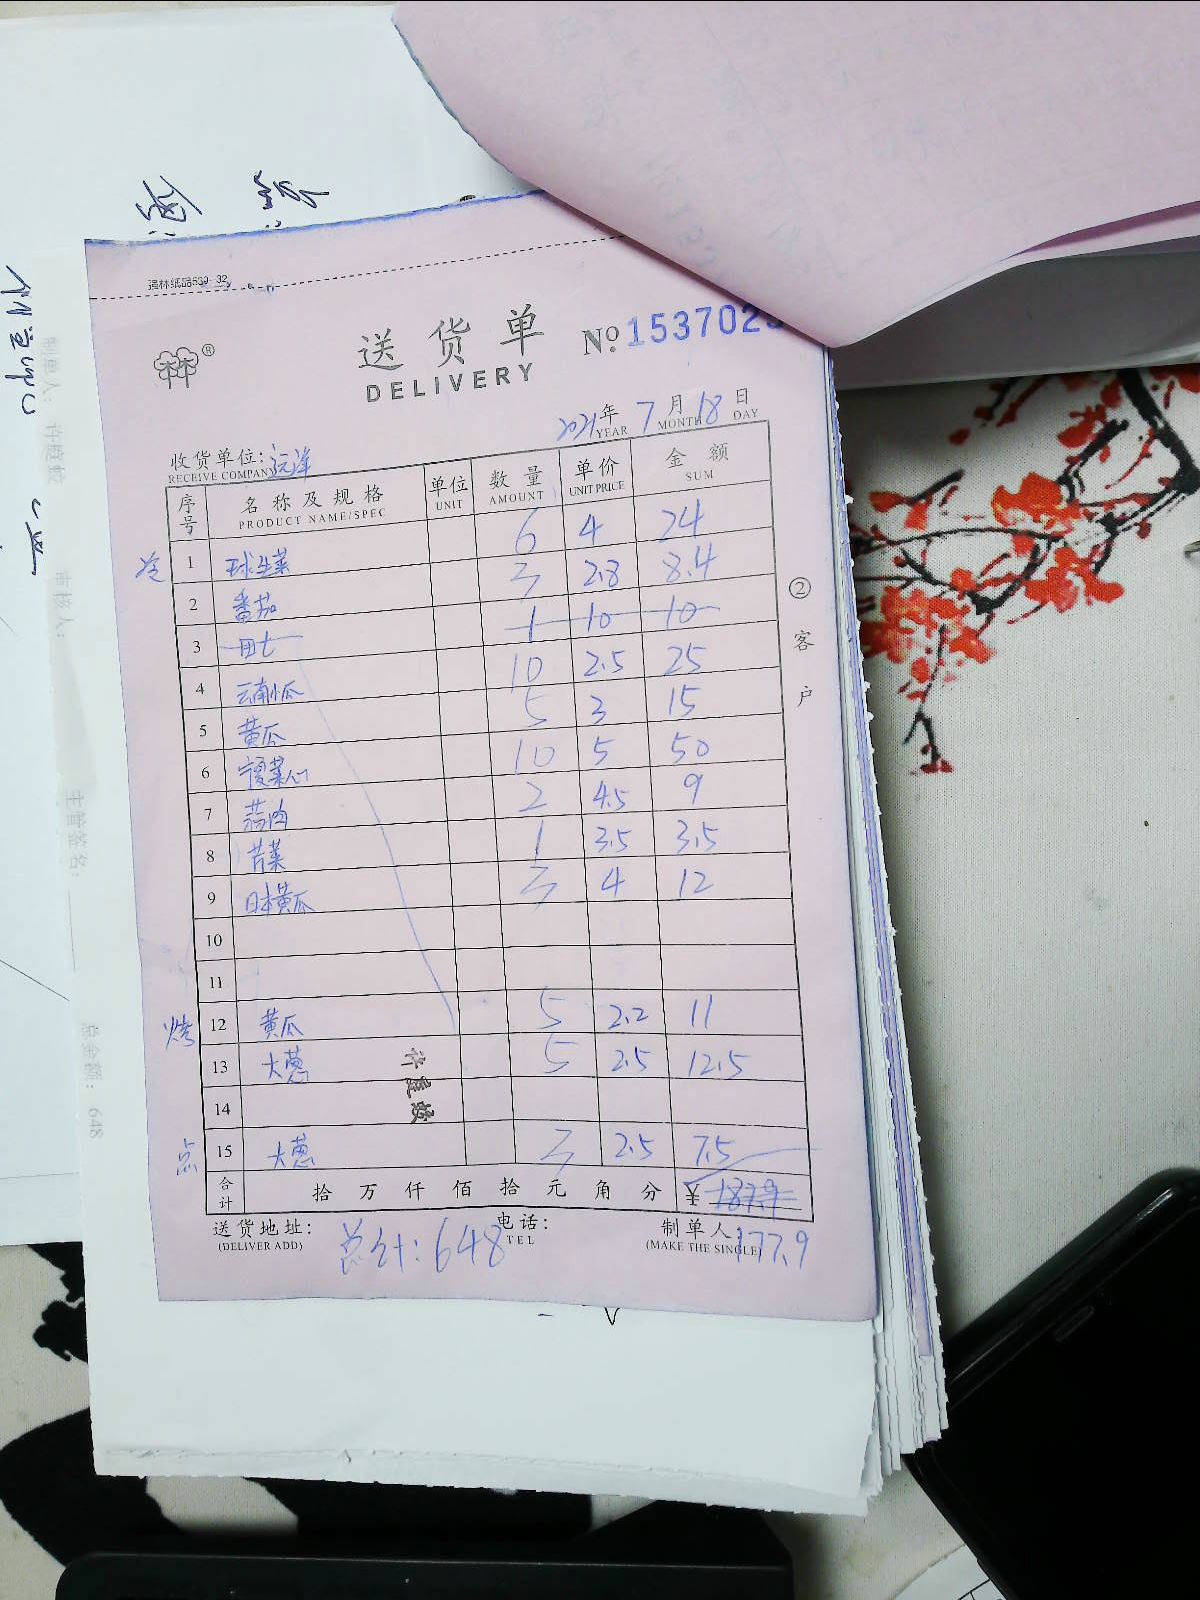 强林纸品539-32
送货单
DELIVERY
№ 153702
2021年 7月 18日
YEAR MONTH DAY
收货单位: 远洋
RECEIVE COMPANY
序号 名称及规格 单位 数量 单价 金额
PRODUCT NAME/SPEC UNIT AMOUNT UNIT PRICE SUM
冷 1 球生菜 6 4 24
2 番茄 3 2.8 8.4
3 1 10 10
4 云南小瓜 10 2.5 25
5 黄瓜 5 3 15
6 宁夏菜心 10 5 50
7 蒜肉 2 4.5 9
8 苦菜 1 3.5 3.5
9 日本黄瓜 3 4 12
10
11
烤 12 黄瓜 5 2.2 11
13 大葱 5 2.5 12.5
14
点 15 大葱 3 2.5 7.5
合计 拾 万 仟 佰 拾 元 角 分 ¥ 187.9
送货地址: 电话: 制单人: 177.9
(DELIVER ADD) TEL (MAKE THE SINGLE)
总计: 648
②客户
制单人: 许庭蛟
审核人:
主管签名:
总金额: 648